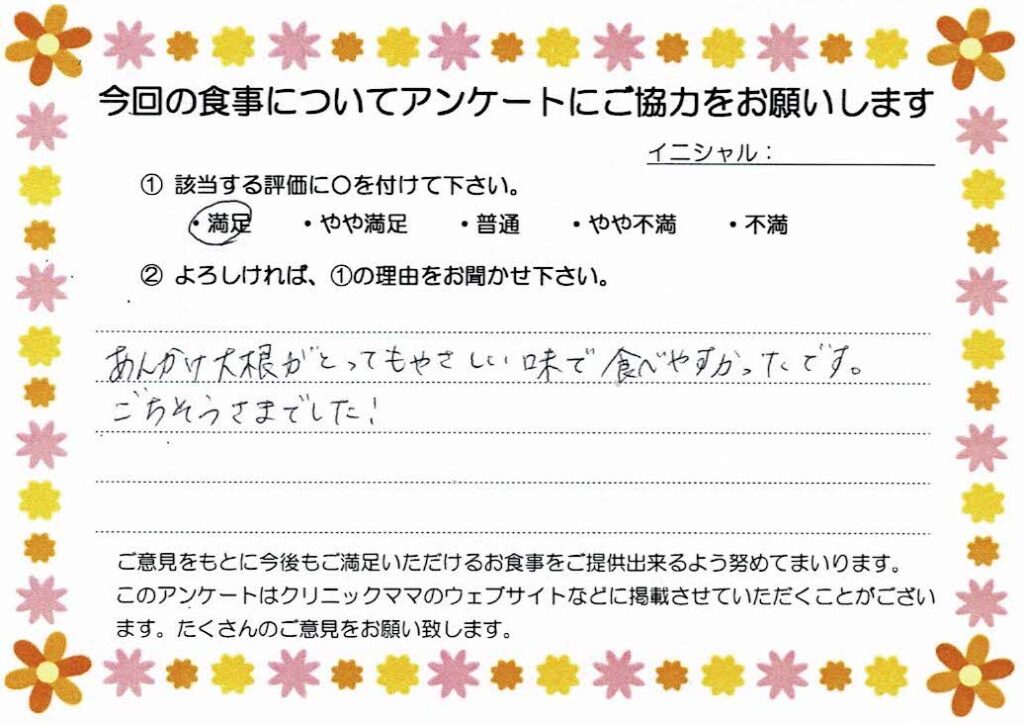 今回の食事についてアンケートにご協力をお願いします
イニシャル：
① 該当する評価に〇を付けて下さい。
・満足 ・やや満足 ・普通 ・やや不満 ・不満
② よろしければ、①の理由をお聞かせ下さい。
あんかけ大根がとってもやさしい味で食べやすかったです。
ごちそうさまでした！
ご意見をもとに今後もご満足いただけるお食事をご提供出来るよう努めてまいります。
このアンケートはクリニックママのウェブサイトなどに掲載させていただくことがござい
ます。たくさんのご意見をお願い致します。